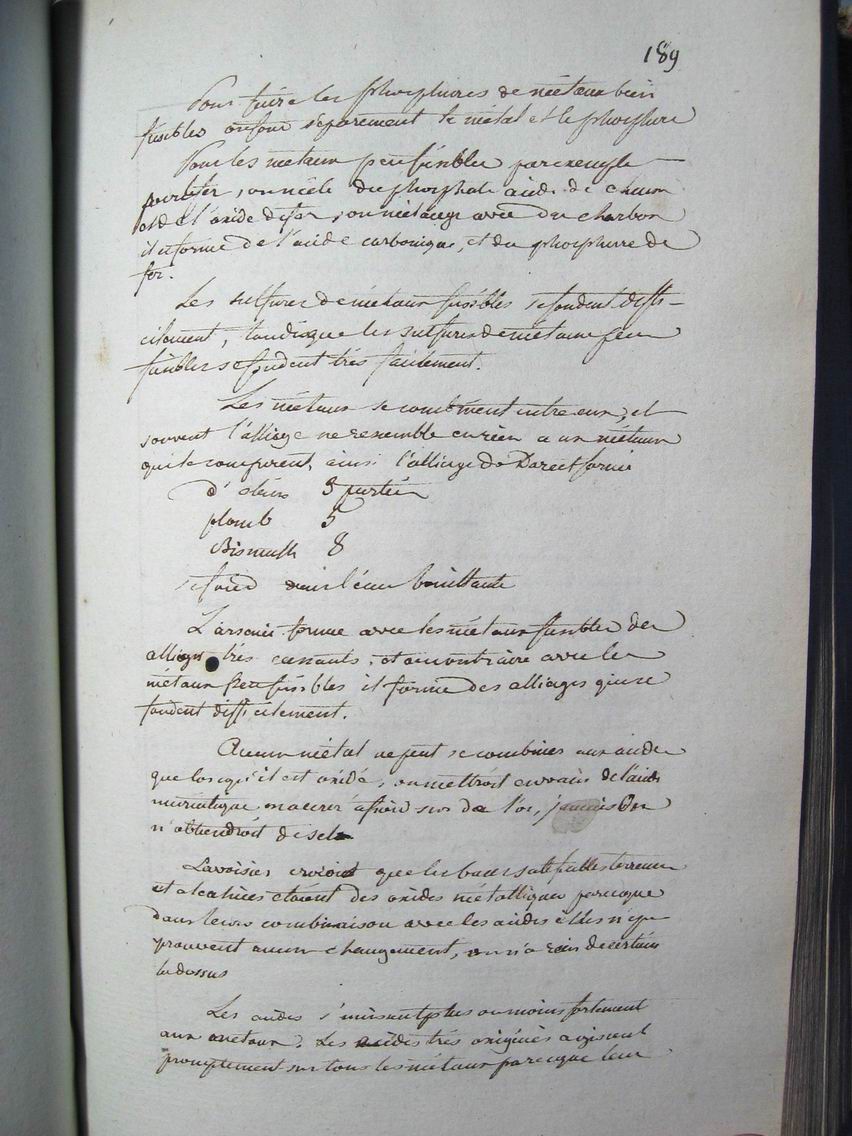 189
Pour faire les phosphures de métaux bien
fusibles on fond séparement le métal et le phosphure
Pour les métaux peu fusibles par exemple
pour le fer, on mêle du phosphate acide de chaux
et de l'oxide de fer, on mélange avec du charbon
il se forme de l'acide carbonique, et du phosphure de
fer.
Les sulfures de métaux fusibles se fondent diffi-
cilement, tandis que les sulfures de métaux peu
fusibles se fondent très facilement.
Les métaux se combinent entre eux, et
souvent l'alliage ne resemble en rien a un métaux
qui le composent, ainsi l'alliage de Darcet formé
d'étain 3 parties
plomb 5
Bismuth 8
se fond dans l'eau bouillante
L'arsenic forme avec les métaux fusibles des
alliages très cassants, et au contraire avec les
métaux peu fusibles il forme des alliages qui se
fondent difficilement.
Aucun métal ne peut se combiner aux acides
que lorsqu'il est oxidé, on mettroit en vain de l'acide
muriatique sur de l'or, jamais on
n'obtiendroit de sel
Lavoisier croioit que les bases salifiables terreuses
et alcalines étoient des oxides métalliques parceque
dans leurs combinaison avec les acides elles n'é
prouvent aucun changement, on n'a rien de certain
la dessus
Les acides s'unissent plus ou moins fortement
aux métaux. Les acides très oxigénés agissent
promptement sur tous les métaux parceque leur